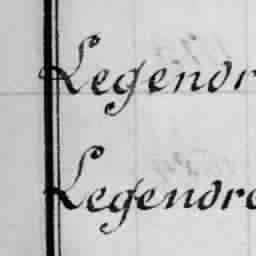 Legendr
Legendre